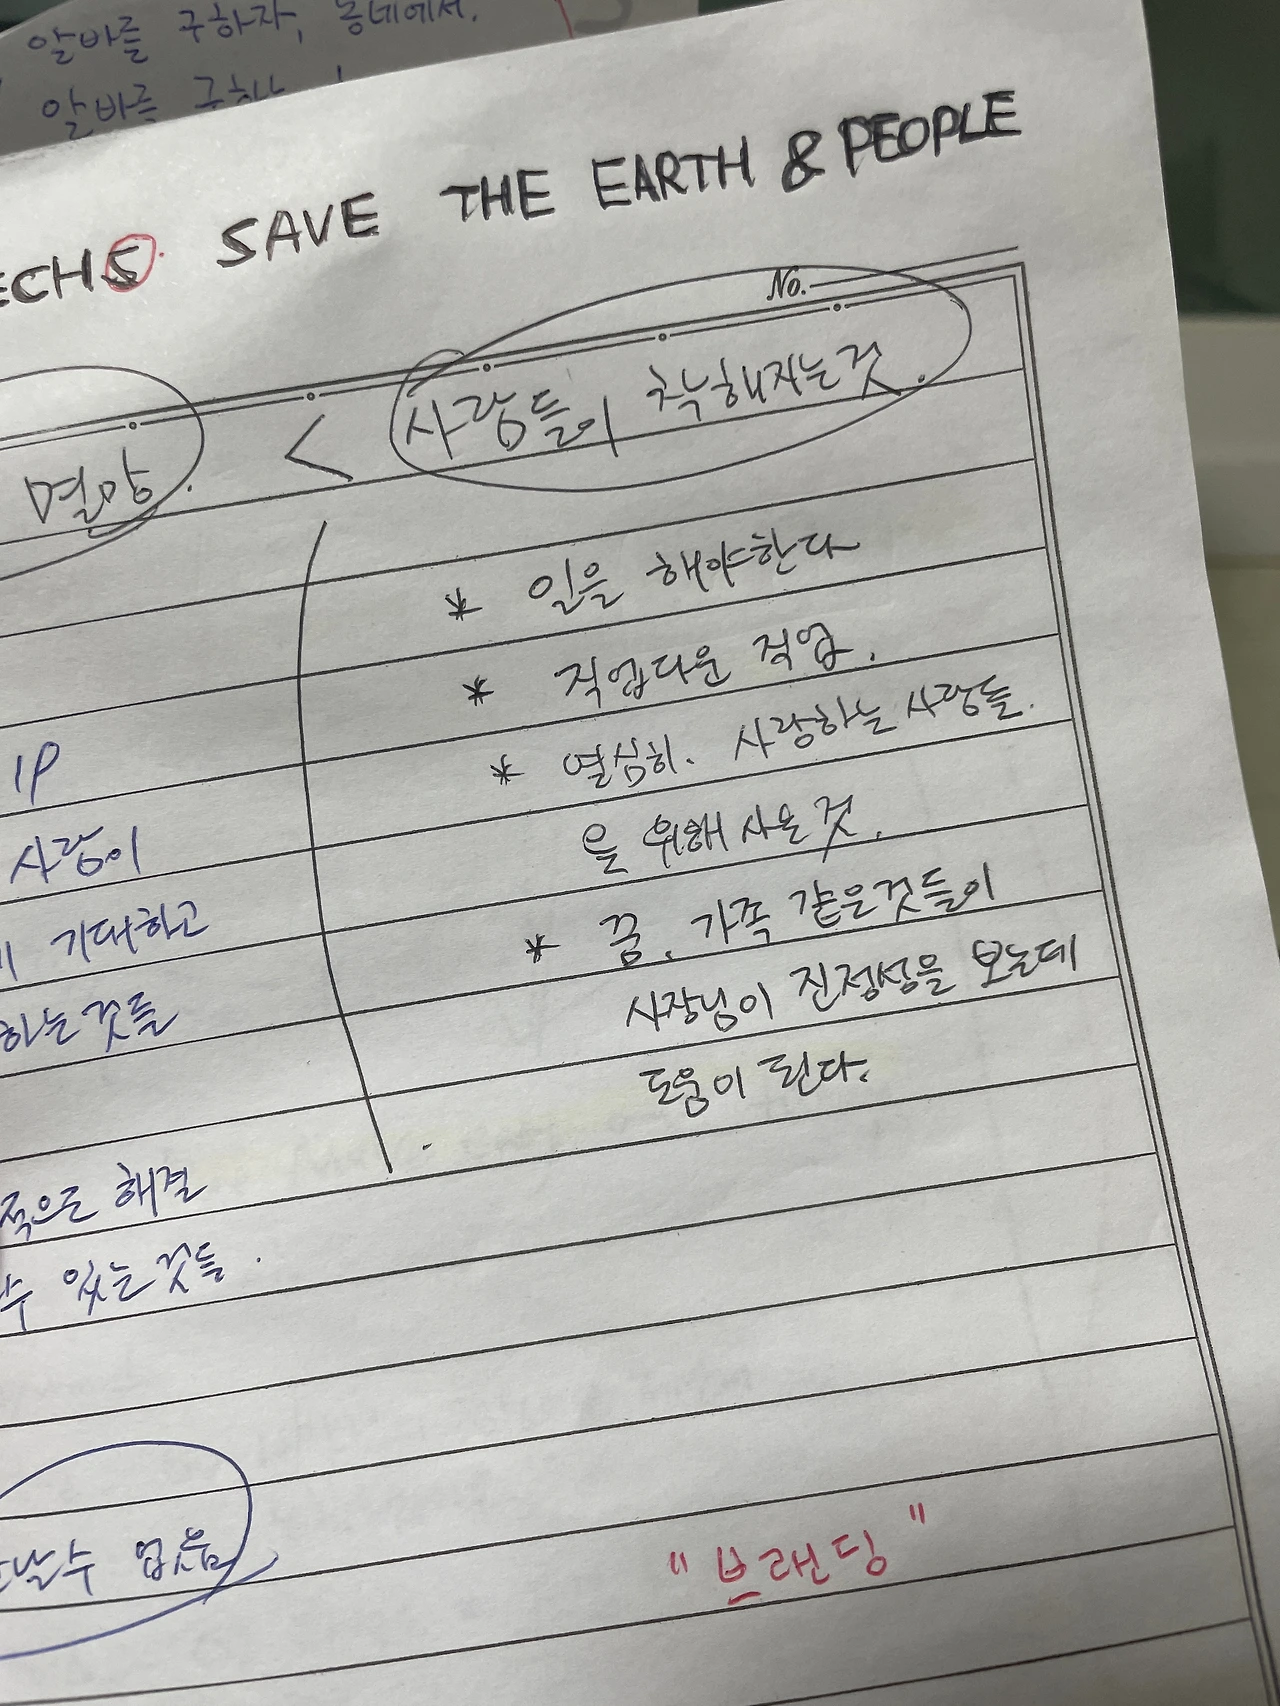 알바를 구하자, 동네에서.
알바를 구하
ECHS. SAVE THE EARTH & PEOPLE
No.
멸망. < 사람들이 착해지는것.
* 일을 해야한다
* 직업다운 직업.
* 열심히. 사랑하는 사람들.
을 위해 사는 것.
* 꿈. 가족 같은것들이
사장님이 진정성을 보는데
도움이 된다.
IP
사람이
기대하고
하는것들
적으로 해결
수 있는것들.
날수 없음
"브랜딩"